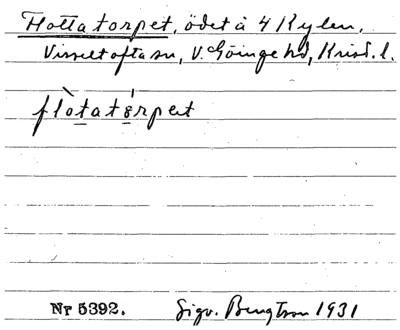 Flottatorpet, ödet å 4 Kylen,
Visseltofta sn, V. Göinge hd, Krist. l.
flòtatórpet
Nr 5392. Sigv. Bengtson 1931